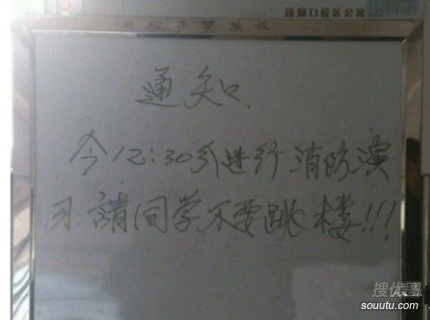 通知.
今12:30分进行消防演
习.請同学不要跳楼!!!
搜优图
souutu.com